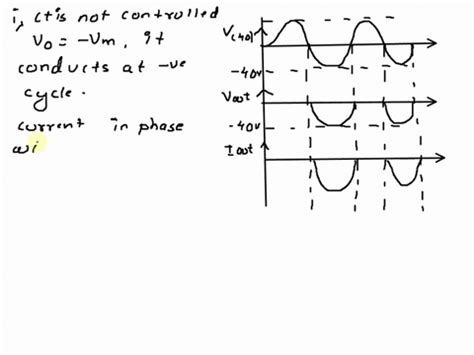 i, ctis not controlled
Vo = -Vm, It
conducts at -ve
cycle.
current in phase
wi
V(40)
-40v
Vout
-40v
Iout